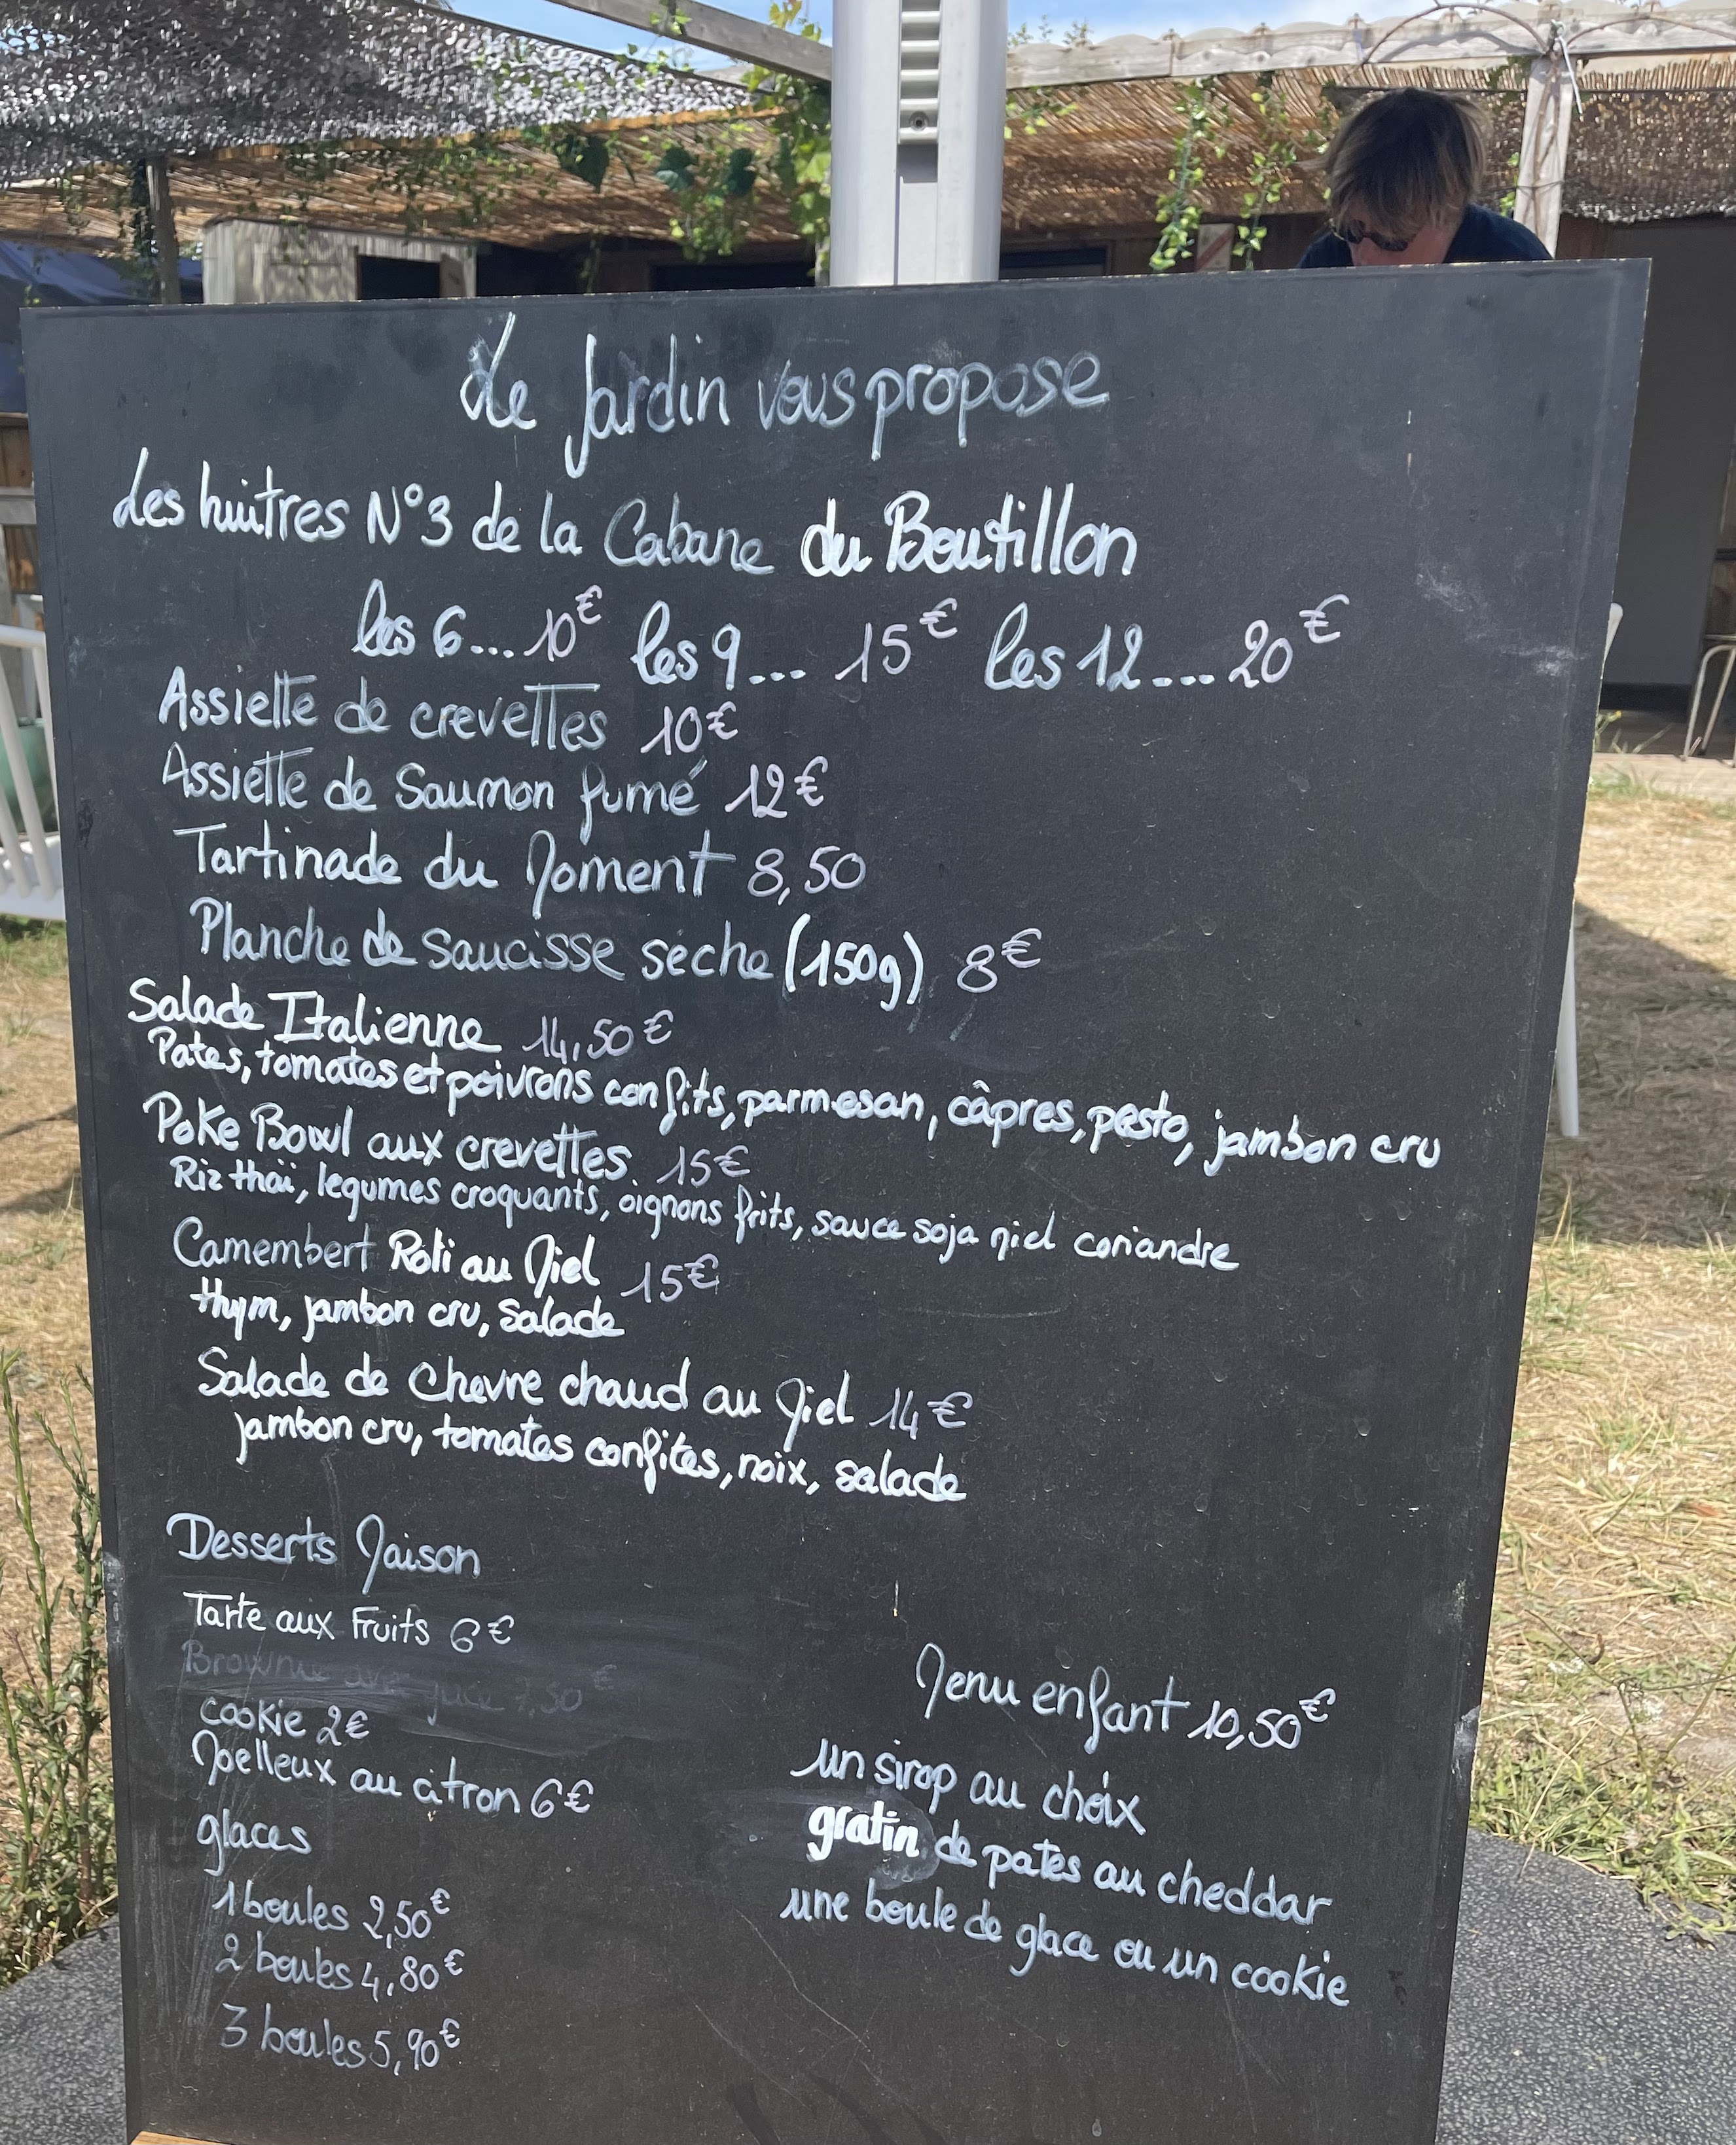 Le Jardin vous propose
Les huitres N°3 de la Cabane du Boutillon
les 6... 10€ les 9... 15€ les 12.... 20€
Assiette de crevettes 10€
Assiette de Saumon fumé 12€
Tartinade du Moment 8,50
Planche de saucisse seche (150g) 8€
Salade Italienne 14,50€
Pates, tomates et poivrons confits, parmesan, câpres, pesto, jambon cru
Poke Bowl aux crevettes 15€
Riz thaï, legumes croquants, oignons frits, sauce soja miel coriandre
Camembert Roti au Miel 15€
thym, jambon cru, salade
Salade de Chevre chaud au Miel 14€
jambon cru, tomates confites, noix, salade
Desserts Maison
Tarte aux Fruits 6€
Brownie 7,50€
cookie 2€
Moelleux au citron 6€
glaces
1 boules 2,50€
2 boules 4,80€
3 boules 5,90€
Menu enfant 10,50€
un sirop au choix
gratin de pates au cheddar
une boule de glace ou un cookie